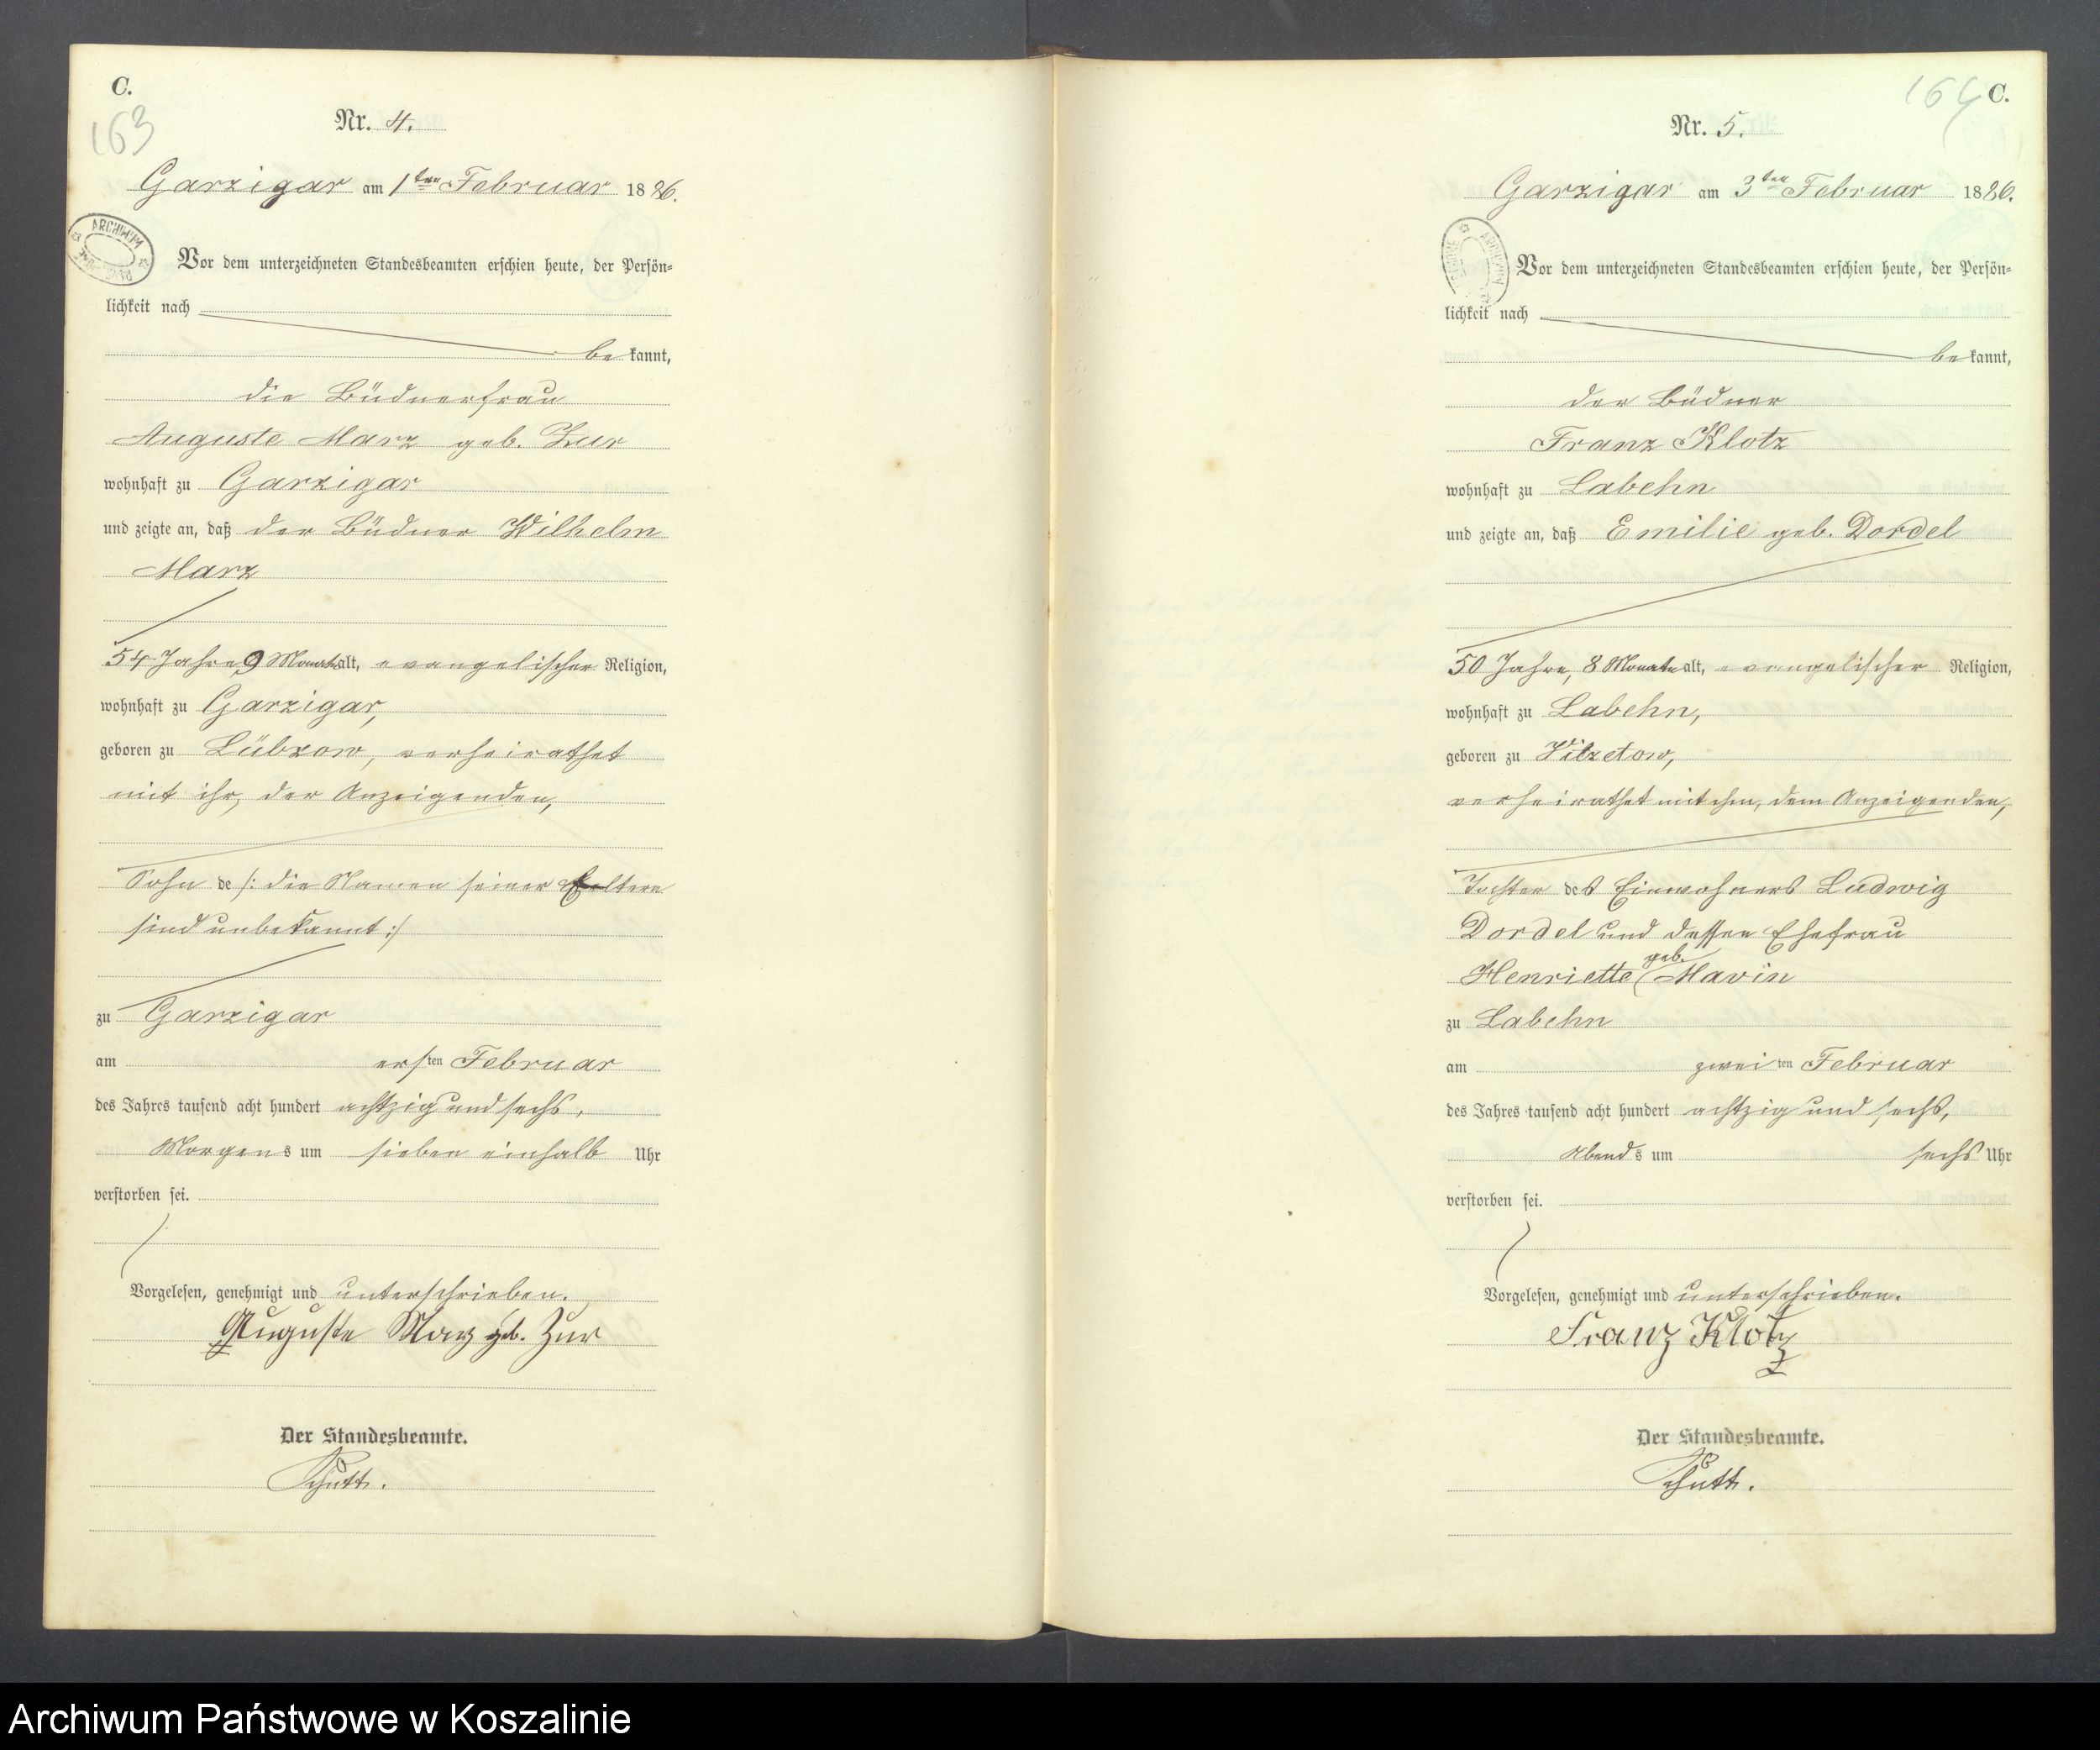 C.
163
Nr. 4.
Garzigar am 1ten Februar 1886.
ARCHIWUM
Vor dem unterzeichneten Standesbeamten erschien heute, der Persön=
lichkeit nach
bekannt,
die Büdnerfrau
Auguste Marz geb. Zur
wohnhaft zu Garzigar
und zeigte an, daß der Büdner Wilhelm
Marz
54 Jahre, 9 Monate alt, evangelischer Religion,
wohnhaft zu Garzigar,
geboren zu Lübzow, verheirathet
mit ihr, der Anzeigenden,
Sohn de /: die Namen seiner Eltern
sind unbekannt :/
zu Garzigar
am ersten Februar
des Jahres tausend acht hundert achtzig und sechs,
Morgens um sieben einhalb Uhr
verstorben sei.
Vorgelesen, genehmigt und unterschrieben.
Auguste Marz geb. Zur
Der Standesbeamte.
Schutt.
164 C.
Nr. 5.
Garzigar am 3ten Februar 1886.
ARCHIWUM
Vor dem unterzeichneten Standesbeamten erschien heute, der Persön=
lichkeit nach
bekannt,
der Büdner
Franz Klotz
wohnhaft zu Labehn
und zeigte an, daß Emilie geb. Dordel
50 Jahre, 8 Monate alt, evangelischer Religion,
wohnhaft zu Labehn,
geboren zu Vitzetow,
verheirathet mit ihm, dem Anzeigenden,
Tochter des Einwohners Ludwig
Dordel und dessen Ehefrau
Henriette geb. Mavin
zu Labehn
am zweiten Februar
des Jahres tausend acht hundert achtzig und sechs,
Abends um sechs Uhr
verstorben sei.
Vorgelesen, genehmigt und unterschrieben.
Franz Klotz
Der Standesbeamte.
Schutt.
Archiwum Państwowe w Koszalinie